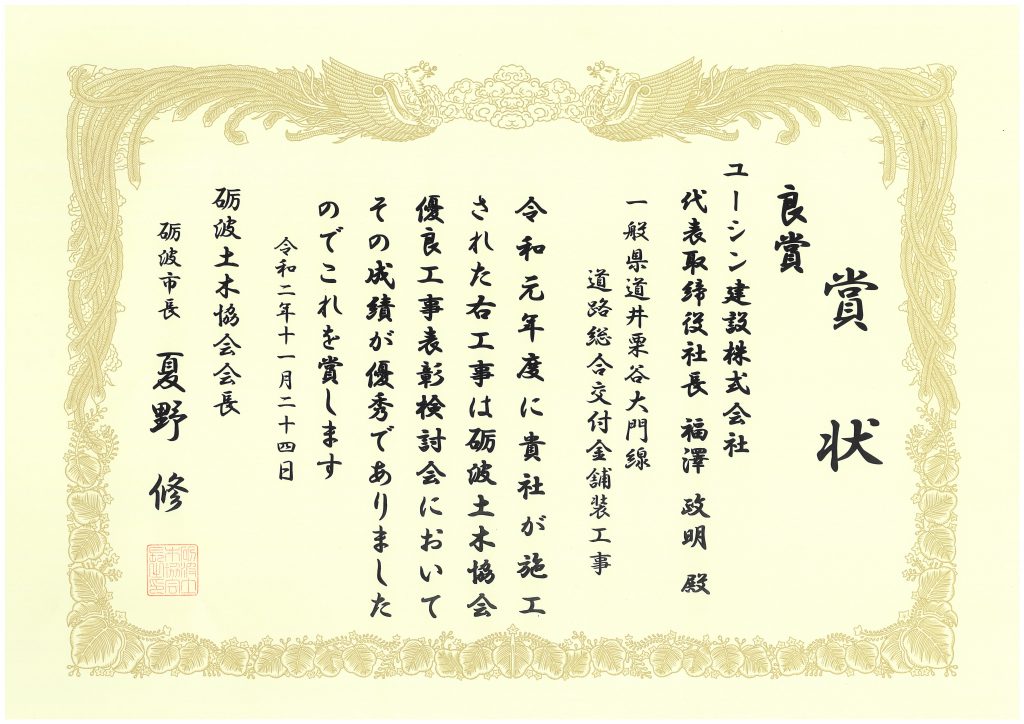 賞状
良賞
ユーシン建設株式会社
代表取締役社長 福澤 政明 殿
一般県道井栗谷大門線
道路総合交付金舗装工事
令和元年度に貴社が施工
された右工事は砺波土木協会
優良工事表彰検討会において
その成績が優秀でありました
のでこれを賞します
令和二年十一月二十四日
砺波土木協会会長
砺波市長 夏野 修